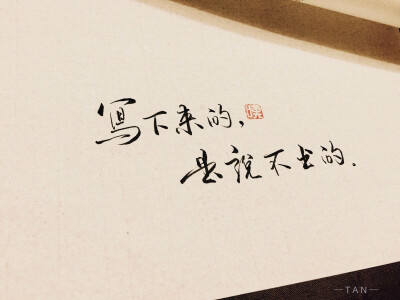 寫下來的，
是說不出的.
—TAN—